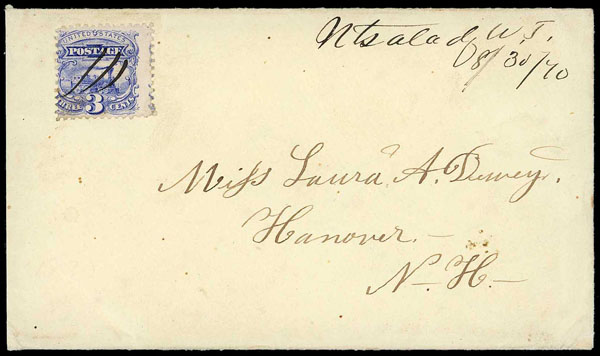 UNITED STATES
POSTAGE
THREE 3 CENTS
Ntsalad W.T.
8/30/70
Miss Laura A. Dewey.
Hanover.—
N—H—